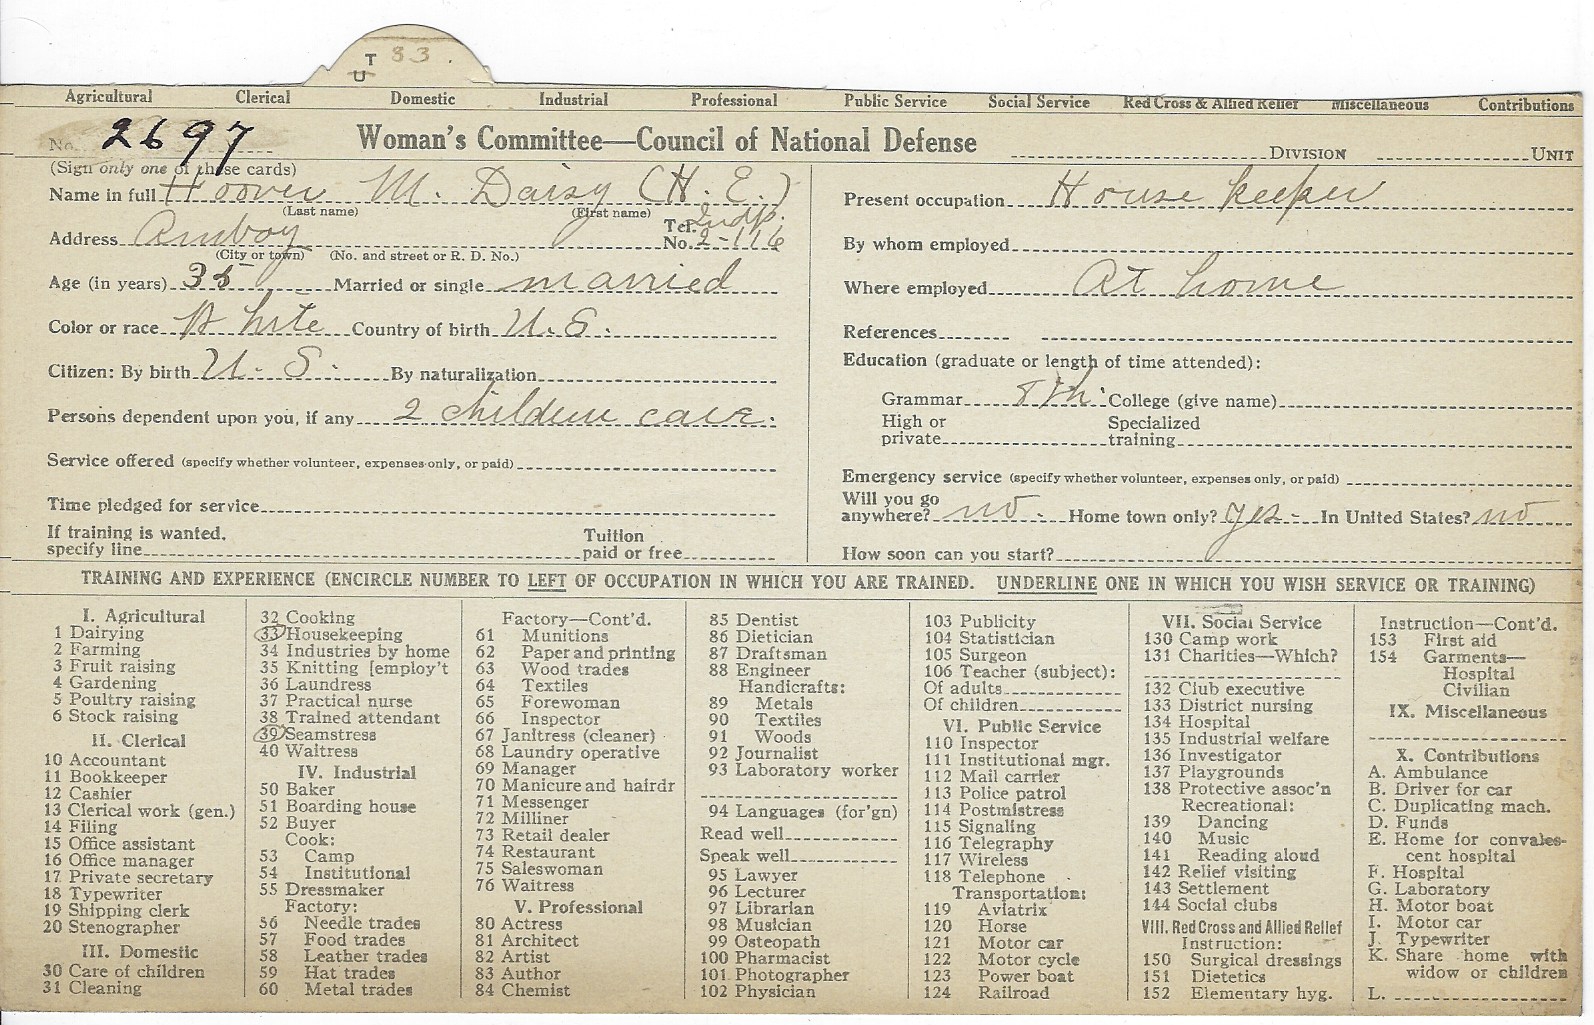 T 83.
U
Agricultural Clerical Domestic Industrial Professional Public Service Social Service Red Cross & Allied Relief Miscellaneous Contributions
No. 2697 Woman's Committee—Council of National Defense DIVISION UNIT
(Sign only one of these cards)
Name in full Hoover M. Daisy (H. E.)
(Last name) (First name)
Address Amboy Tel. No. Indp. 2-116
(City or town) (No. and street or R. D. No.)
Age (in years) 35 Married or single married
Color or race White Country of birth U.S.
Citizen: By birth U.S. By naturalization
Persons dependent upon you, if any 2 children care.
Service offered (specify whether volunteer, expenses only, or paid)
Time pledged for service
If training is wanted, specify line Tuition paid or free
Present occupation House keeper
By whom employed
Where employed At home
References
Education (graduate or length of time attended):
Grammar 8th. College (give name)
High or private Specialized training
Emergency service (specify whether volunteer, expenses only, or paid)
Will you go anywhere? no. Home town only? yes- In United States? no
How soon can you start?
TRAINING AND EXPERIENCE (ENCIRCLE NUMBER TO LEFT OF OCCUPATION IN WHICH YOU ARE TRAINED. UNDERLINE ONE IN WHICH YOU WISH SERVICE OR TRAINING)
I. Agricultural
1 Dairying
2 Farming
3 Fruit raising
4 Gardening
5 Poultry raising
6 Stock raising
II. Clerical
10 Accountant
11 Bookkeeper
12 Cashier
13 Clerical work (gen.)
14 Filing
15 Office assistant
16 Office manager
17 Private secretary
18 Typewriter
19 Shipping clerk
20 Stenographer
III. Domestic
30 Care of children
31 Cleaning
32 Cooking
33 Housekeeping
34 Industries by home
35 Knitting [employ't
36 Laundress
37 Practical nurse
38 Trained attendant
39 Seamstress
40 Waitress
IV. Industrial
50 Baker
51 Boarding house
52 Buyer
Cook:
53 Camp
54 Institutional
55 Dressmaker
Factory:
56 Needle trades
57 Food trades
58 Leather trades
59 Hat trades
60 Metal trades
Factory—Cont'd.
61 Munitions
62 Paper and printing
63 Wood trades
64 Textiles
65 Forewoman
66 Inspector
67 Janitress (cleaner)
68 Laundry operative
69 Manager
70 Manicure and hairdr
71 Messenger
72 Milliner
73 Retail dealer
74 Restaurant
75 Saleswoman
76 Waitress
V. Professional
80 Actress
81 Architect
82 Artist
83 Author
84 Chemist
85 Dentist
86 Dietician
87 Draftsman
88 Engineer
Handicrafts:
89 Metals
90 Textiles
91 Woods
92 Journalist
93 Laboratory worker
94 Languages (for'gn)
Read well
Speak well
95 Lawyer
96 Lecturer
97 Librarian
98 Musician
99 Osteopath
100 Pharmacist
101 Photographer
102 Physician
103 Publicity
104 Statistician
105 Surgeon
106 Teacher (subject):
Of adults
Of children
VI. Public Service
110 Inspector
111 Institutional mgr.
112 Mail carrier
113 Police patrol
114 Postmistress
115 Signaling
116 Telegraphy
117 Wireless
118 Telephone
Transportation:
119 Aviatrix
120 Horse
121 Motor car
122 Motor cycle
123 Power boat
124 Railroad
VII. Social Service
130 Camp work
131 Charities—Which?
132 Club executive
133 District nursing
134 Hospital
135 Industrial welfare
136 Investigator
137 Playgrounds
138 Protective assoc'n
Recreational:
139 Dancing
140 Music
141 Reading aloud
142 Relief visiting
143 Settlement
144 Social clubs
VIII. Red Cross and Allied Relief
Instruction:
150 Surgical dressings
151 Dietetics
152 Elementary hyg.
Instruction—Cont'd.
153 First aid
154 Garments—
Hospital
Civilian
IX. Miscellaneous
X. Contributions
A. Ambulance
B. Driver for car
C. Duplicating mach.
D. Funds
E. Home for convales-
cent hospital
F. Hospital
G. Laboratory
H. Motor boat
I. Motor car
J. Typewriter
K. Share home with
widow or children
L.